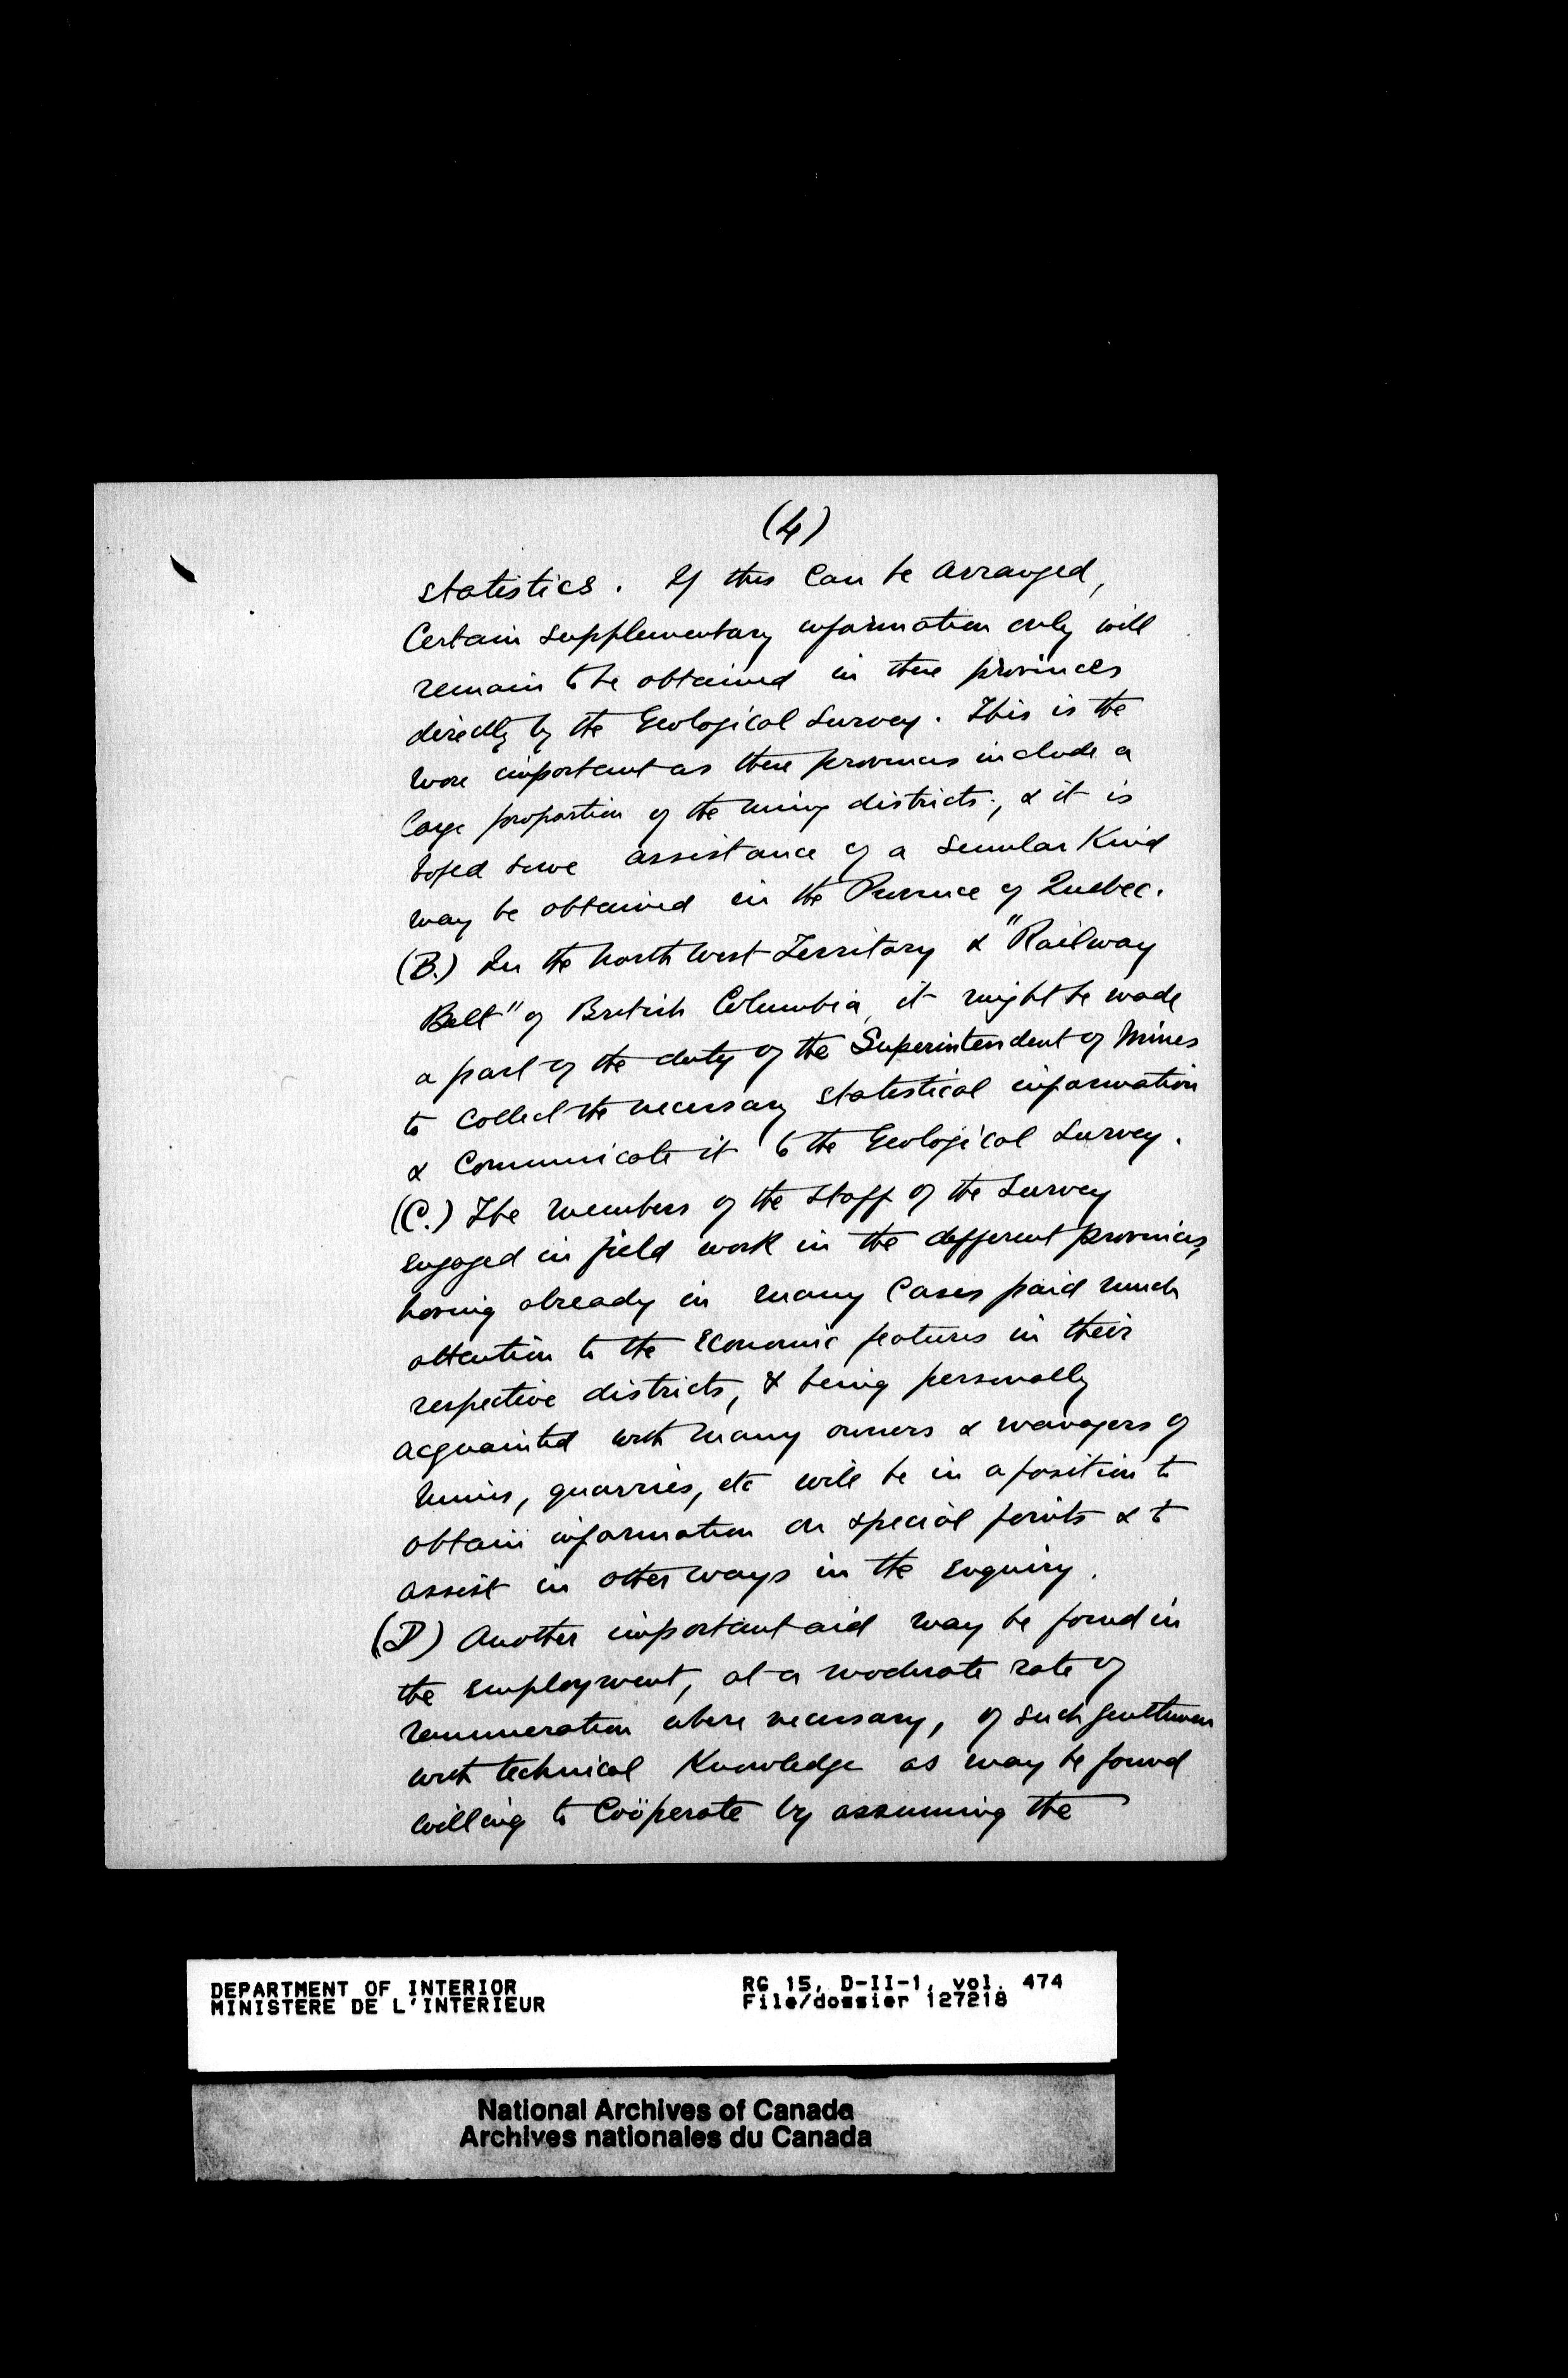 (4)
statistics. If this can be arranged,
Certain supplementary information only will
remain to be obtained in these provinces
directly by the Geological Survey. This is the
more important as these provinces include a
large proportion of the mining districts, & it is
hoped some assistance of a similar Kind
may be obtained in the Province of Quebec.
(B.) In the North West Territory & "Railway
Belt" of British Columbia, it might be made
a part of the duty of the Superintendent of Mines
to Collect the necessary statistical information
& Communicate it to the Geological Survey.
(C.) The members of the staff of the Survey
engaged in field work in the different provinces,
having already in many Cases paid much
attention to the Economic features in their
respective districts, & being personally
acquainted with many owners & managers of
mines, quarries, etc will be in a position to
obtain information on special points & to
assist in other ways in the enquiry.
(D) Another important aid may be found in
the employment, at a moderate rate of
remuneration where necessary, of such gentlemen
with technical Knowledge as may be found
willing to Coöperate by assuming the
DEPARTMENT OF INTERIOR
MINISTERE DE L'INTERIEUR
RG 15, D-II-1, vol. 474
File/dossier 127218
National Archives of Canada
Archives nationales du Canada